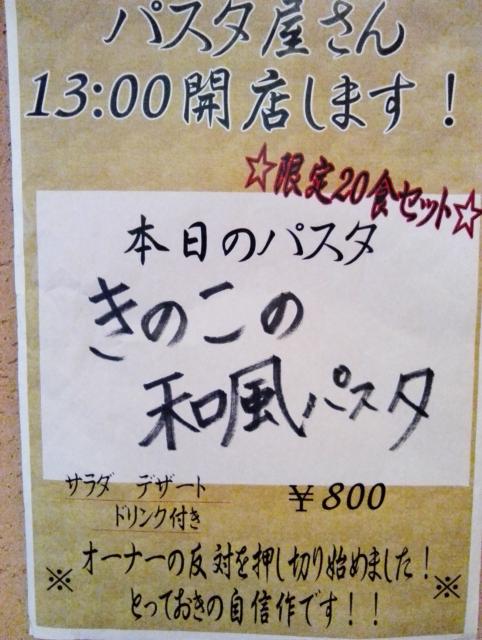 パスタ屋さん
13:00開店します！
☆限定20食セット☆
本日のパスタ
きのこの
和風パスタ
サラダ デザート
ドリンク付き
￥800
※オーナーの反対を押し切り始めました！
とっておきの自信作です！！※